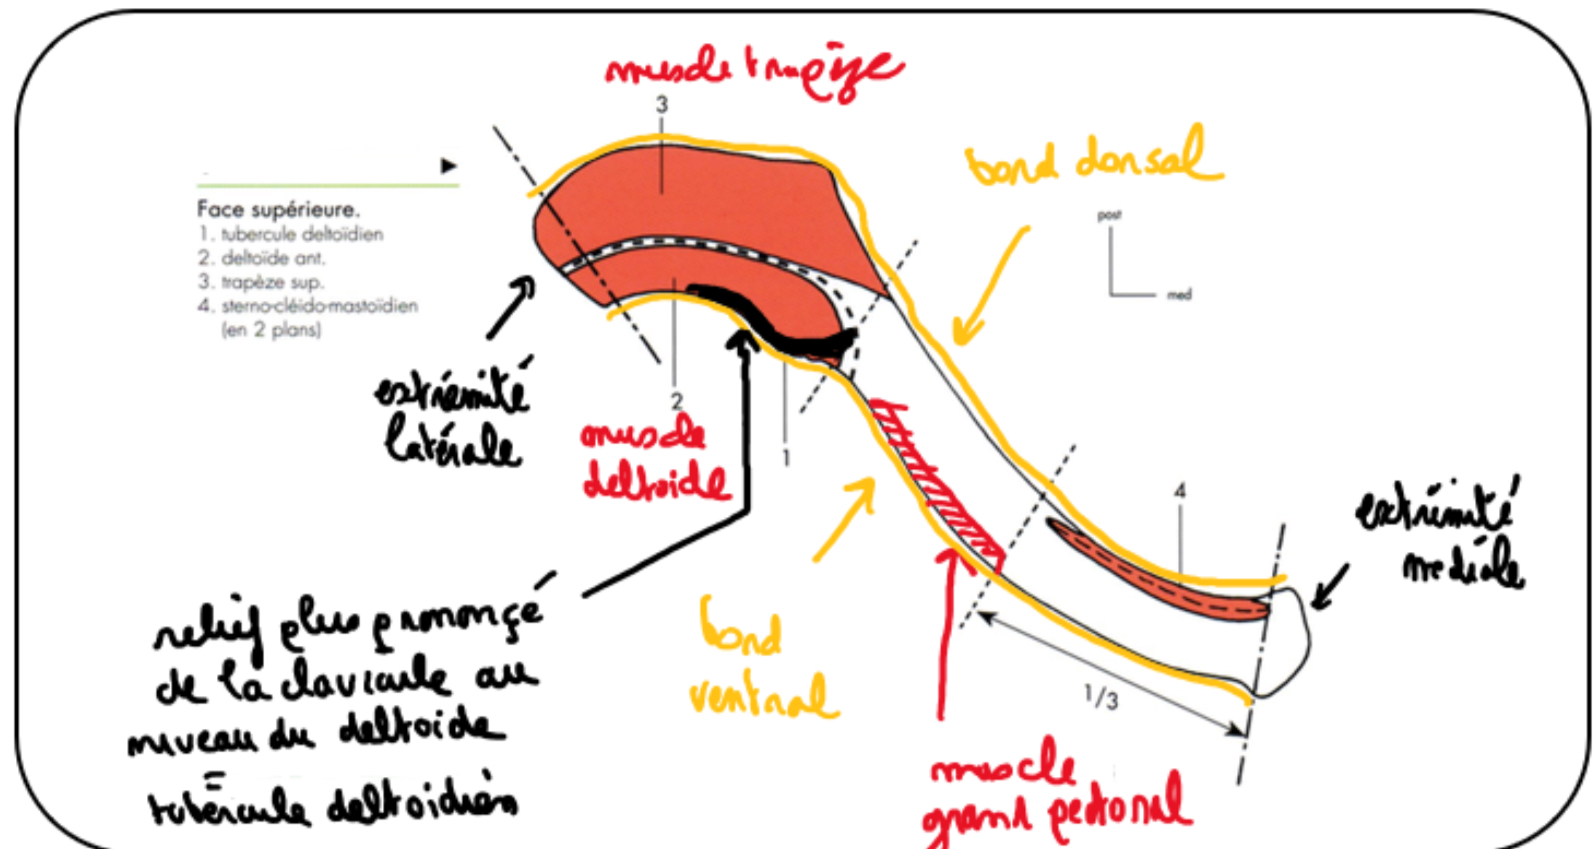 muscle trapèze
3
bord dorsal
post
med
Face supérieure.
1. tubercule deltoïdien
2. deltoïde ant.
3. trapèze sup.
4. sterno-cléido-mastoïdien
(en 2 plans)
extrémité
latérale
2
muscle
deltoide
1
4
extrémité
mediale
relief plus prononçé
de la clavicule au
niveau du deltoide
=
tubércule deltoidien
bord
ventral
1/3
muscle
grand pectoral